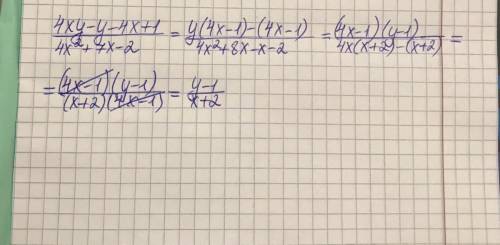 (4xy-y-4x+1)/(4x²+7x-2) = (y(4x-1)-(4x-1))/(4x²+8x-x-2) = ((4x-1)(y-1))/(4x(x+2)-(x+2)) =
= ((4x-1)(y-1))/((x+2)(4x-1)) = (y-1)/(x+2)